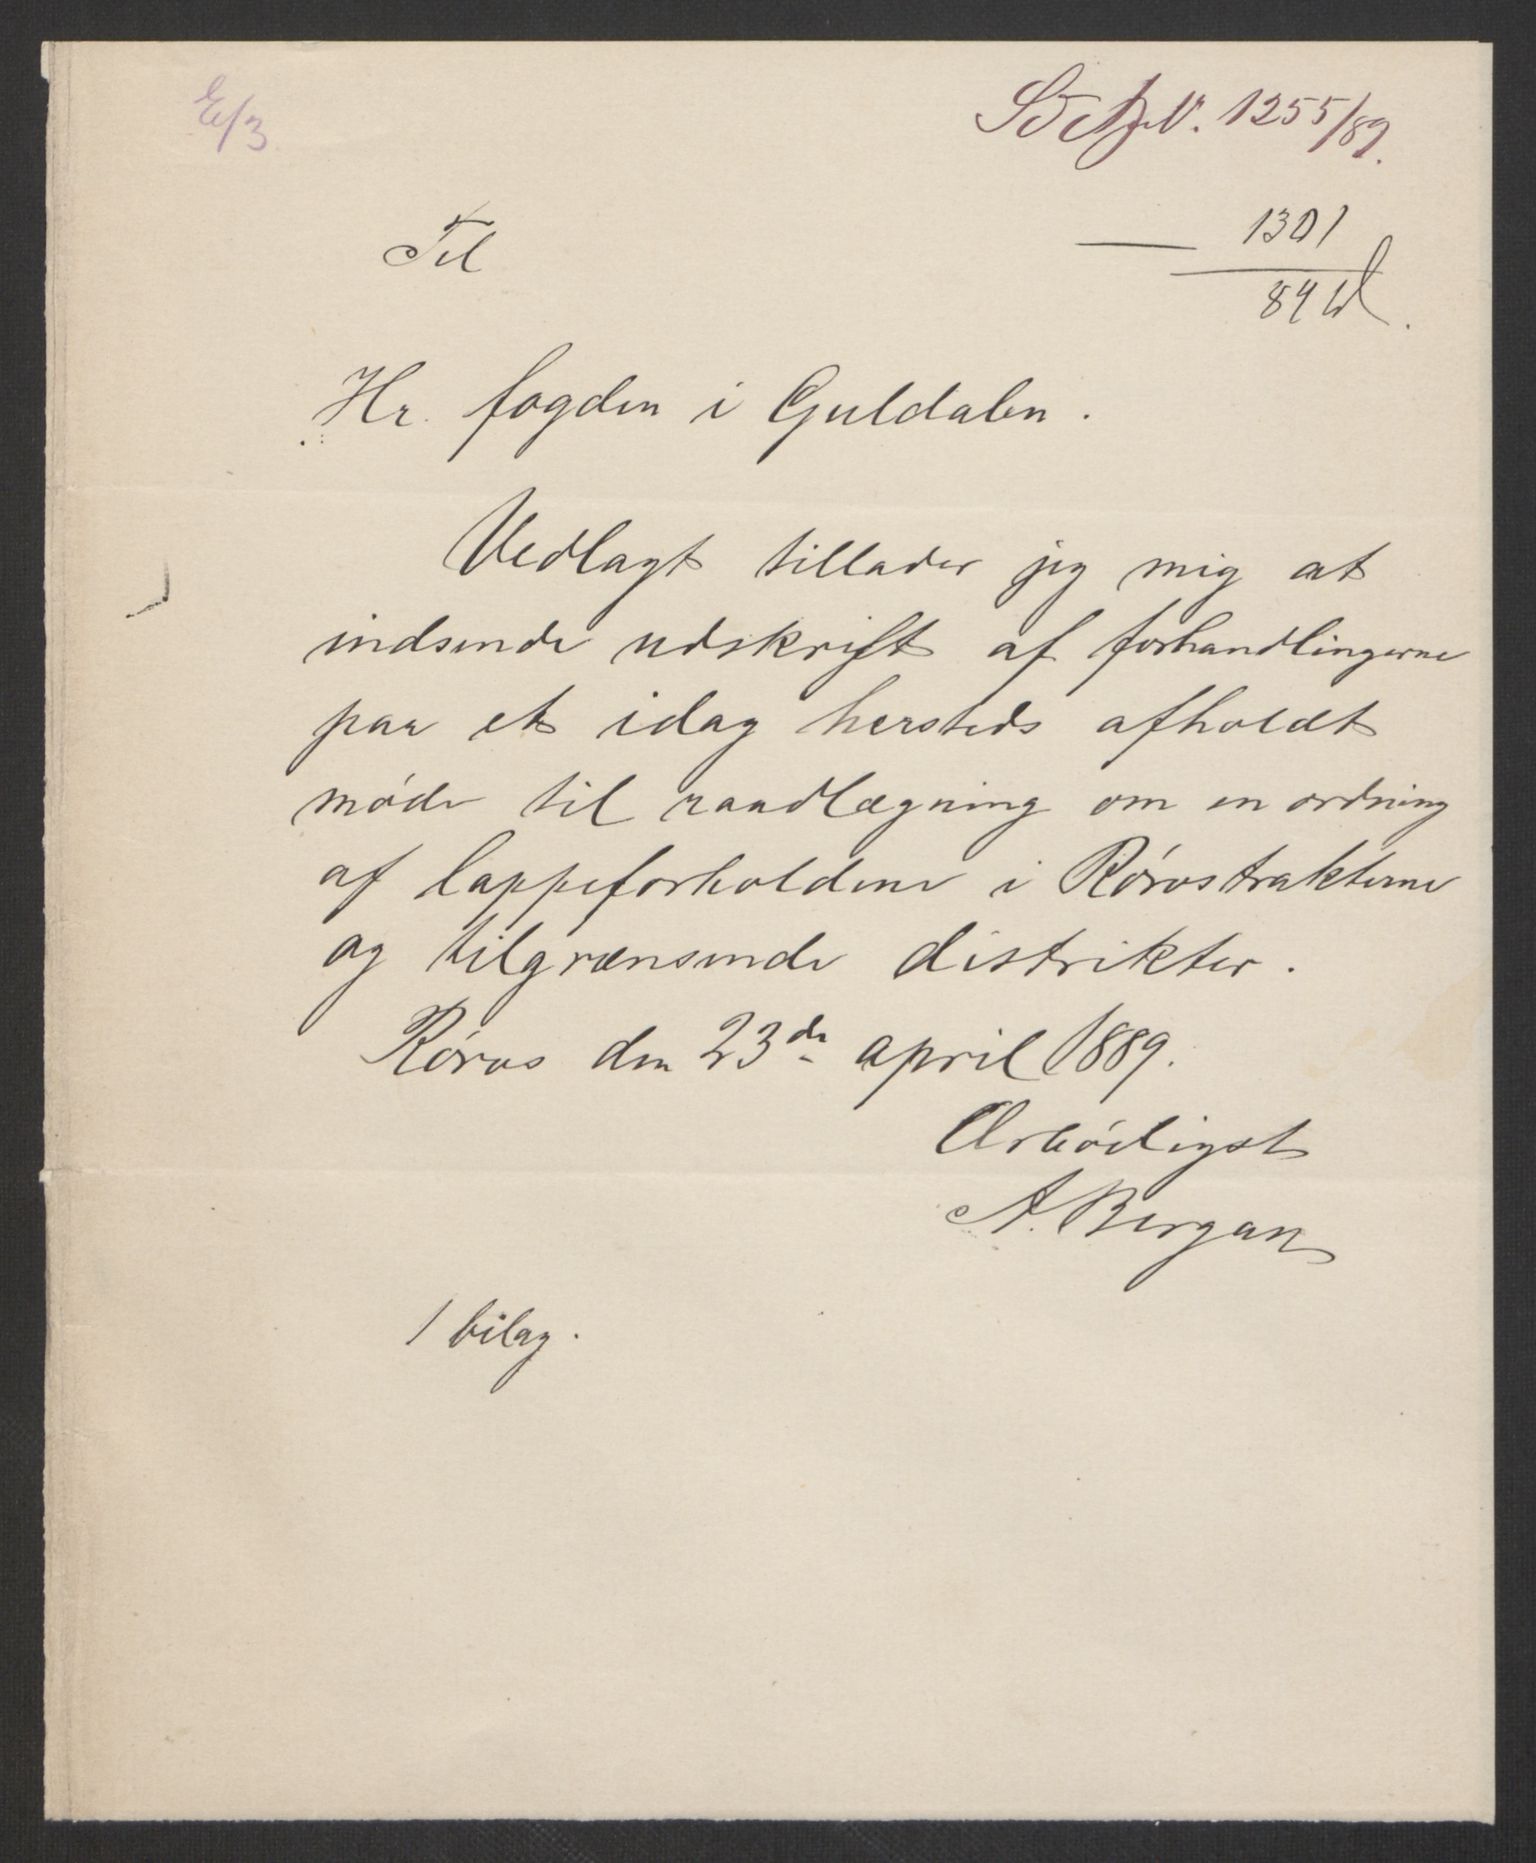 E/3
1255/89.
1301
89
Til
Hr. fogden i Guldalen.
Vedlagt tillader jeg mig at
indsende udskrift af forhandlingerne
paa et idag hersteds afholdt
møde til raadlægning om en ordning
af lappeforholdene i Rørostrakterne
og tilgrænsende distrikter.
Røros den 23de april 1889.
Ærbødigst
A. Bergan
1 bilag.